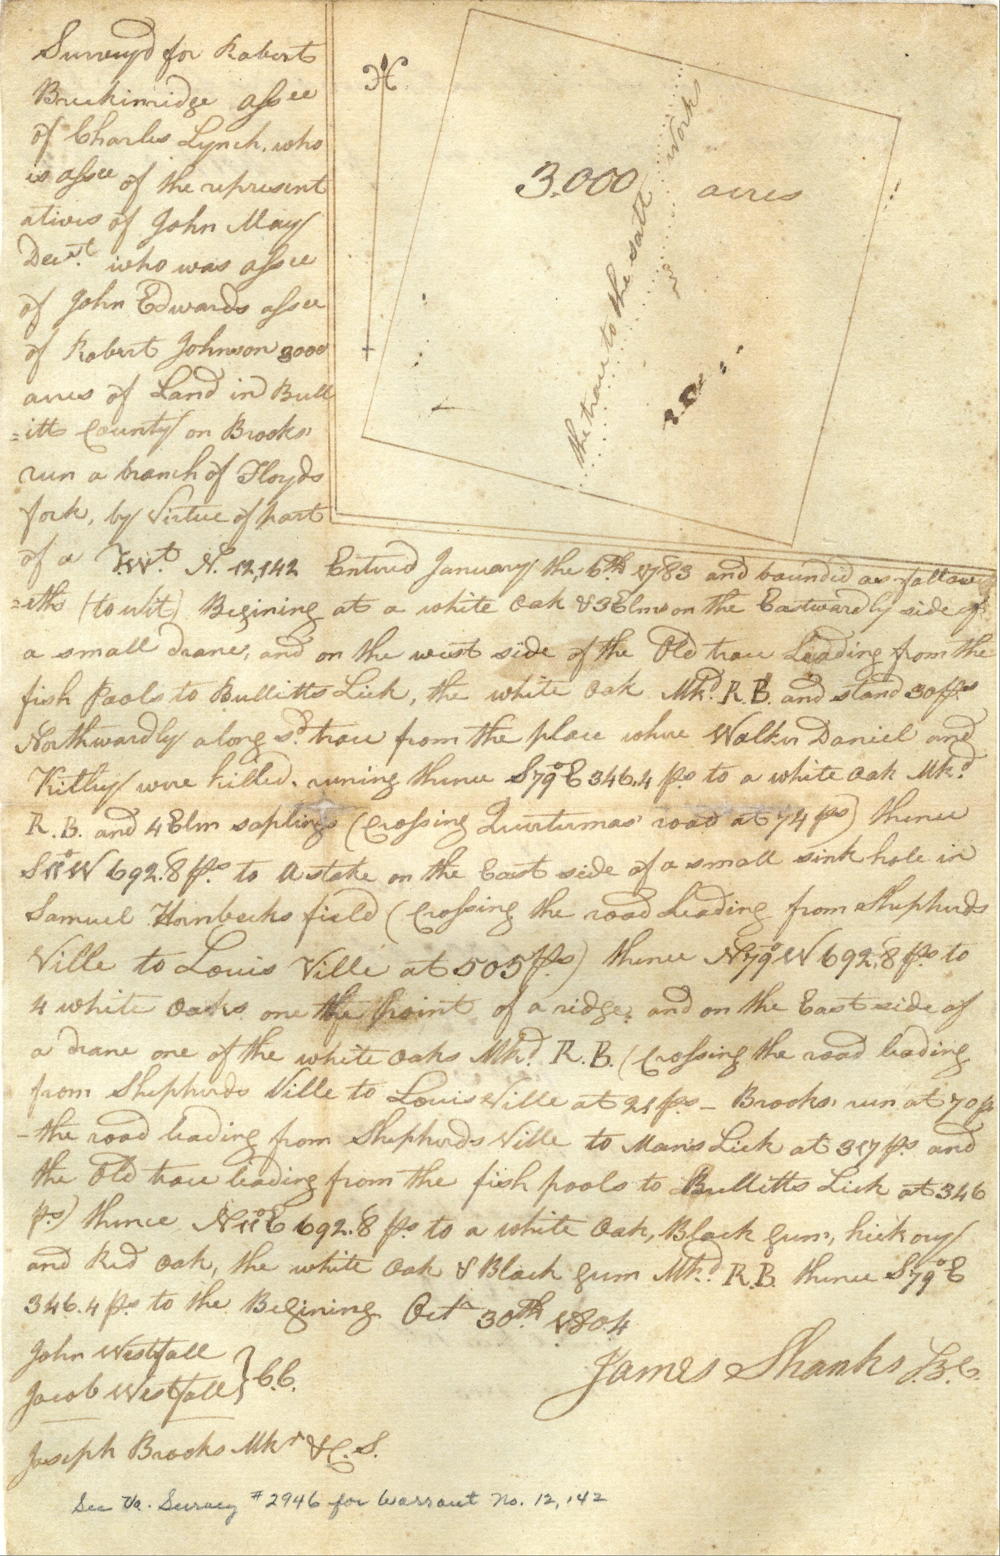 Surveyd for Robert
Breckinridge assee
of Charles Lynch, who
is assee of the represent
atives of John May
Decst. who was assee
of John Edwards assee
of Robert Johnson 3000
acres of Land in Bull
=itts County on Brooks
run a branch of Floyds
fork, by Virtue of part
3,000 acres
the trace to the salt works
of a T.Wt. N. 12,142 Entred January the 6th 1783 and bounded as follow
=eths (to wit) Begining at a white Oak & 3 Elms on the Eastwardly side of
a small drane, and on the west side of the Old trace Leading from the
fish Pools to Bullitts Lick, the white Oak Mkd. R.B. and stand 30 ps
Northwardly along sd. trace from the place where Walker Daniel and
Kithey were killed. runing thence S79°E 346.4 ps to a white Oak Mkd.
R.B. and 4 Elm saplings (Crossing road at 74 ps) thence
S11°W 692.8 ps. to A stake on the East side of a small sink hole in
Samuel Hornbecks field (Crossing the road Leading from Shepherds
Ville to Louis Ville at 505 ps) thence N79°W 692.8 ps to
4 white Oaks one the point of a ridge, and on the East side of
a drane one of the white Oaks Mkd. R.B. (Crossing the road leading
from Shepherds Ville to Louis Ville at 21 ps - Brooks run at 70 p
- the road leading from Shepherds Ville to Mans Lick at 317 ps. and
the Old trace leading from the fish pools to Bullitts Lick at 346
ps) thence N11°E 692.8 ps. to a white Oak, Black gum, hickory
and Red Oak, the white Oak & Black gum Mkd. R.B. thence S79°E
346.4 ps to the Begining Octr 30th 1804
John Westfall
Jacob Westfall } C.C.
James Shanks
Joseph Brooks Mkr & C.S.
See Va. Survey #2946 for Warrant No. 12,142